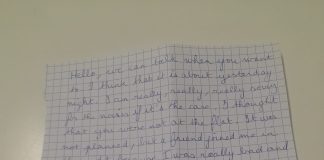 Hello, we can talk when you want
to. I think that it is about yesterday
night. I am really, really, really sorry
for the noises if it's the case. I thought
that you were not at the flat. It was
not planned, but a friend joined me in
I was really bad and